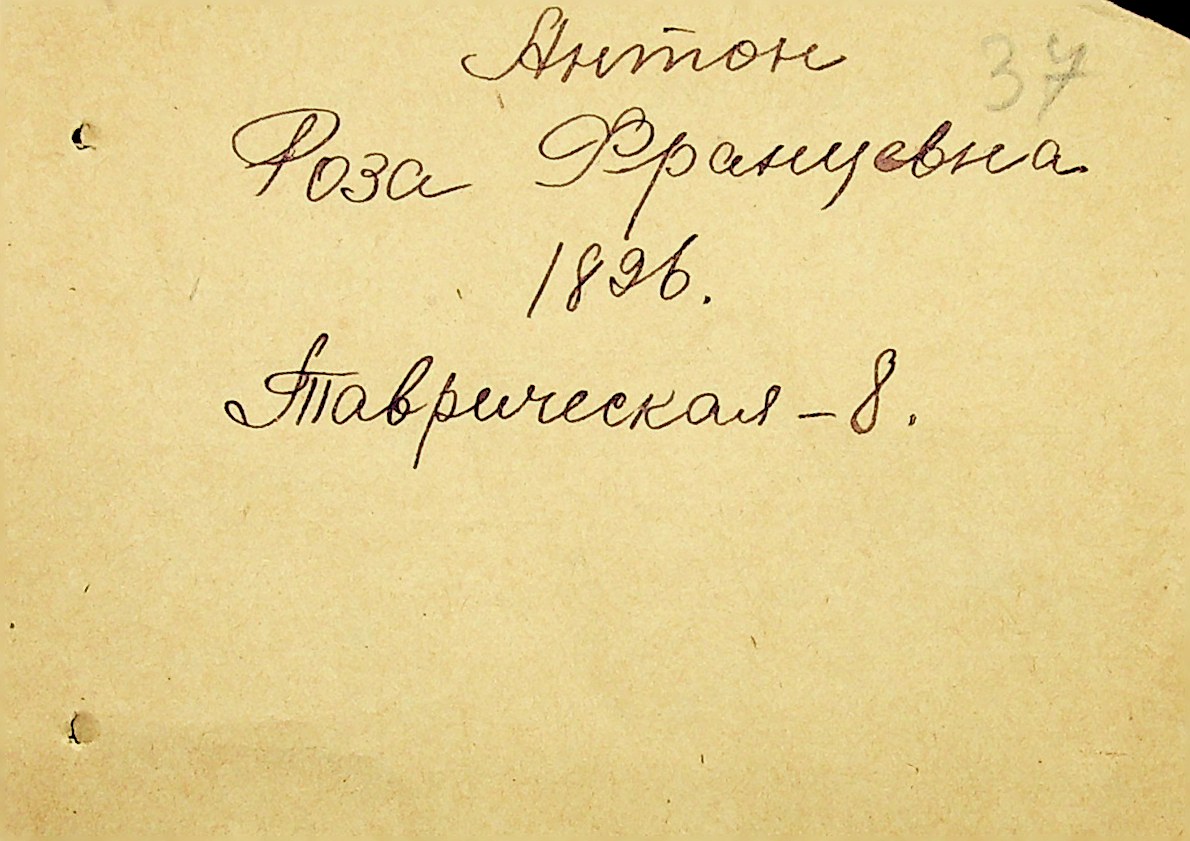 Антон 37
Роза Францевна
1896.
Таврическая - 8.